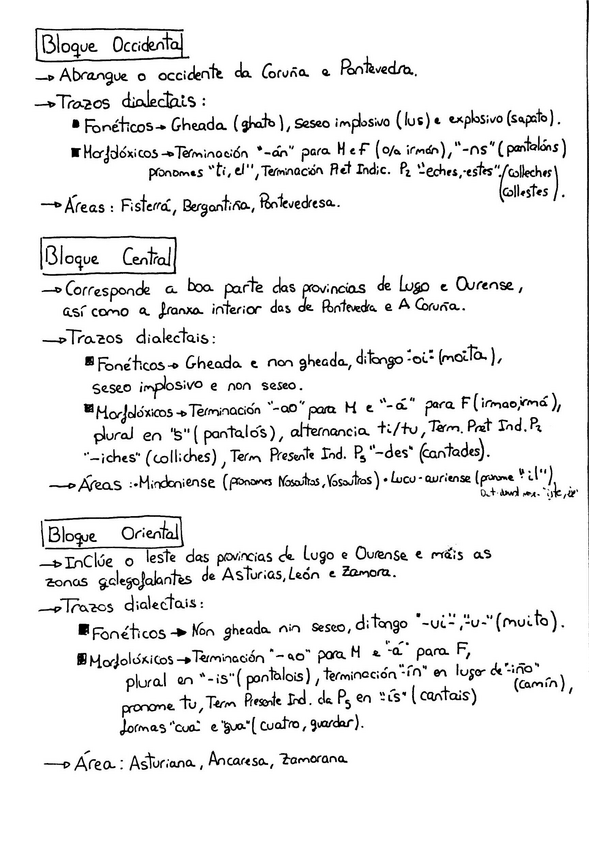 Bloque Occidental
→ Abrangue o occidente da Coruña e Pontevedra.
→ Trazos dialectais:
▪ Fonéticos → Gheada (ghato), seseo implosivo (lus) e explosivo (sapato).
▪ Morfolóxicos → Terminación "-án" para M e F (o/a irmán), "-ns" (pantalóns)
pronomes "ti, el", Terminación Pret Indic. P2 "-eches, -estes" (colleches
/collestes).
→ Áreas: Fisterrá, Bergantiña, Pontevedresa.
Bloque Central
→ Corresponde a boa parte das provincias de Lugo e Ourense,
así como a franxa interior das de Pontevedra e A Coruña.
→ Trazos dialectais:
▪ Fonéticos → Gheada e non gheada, ditongo "-oi-" (moita),
seseo implosivo e non seseo.
▪ Morfolóxicos → Terminación "-ao" para M e "-á" para F (irmao, irmá),
plural en "s" (pantalós), alternancia ti/tu, Term. Pret Ind. P2
"-iches" (colliches), Term Presente Ind. P5 "-des" (cantades).
→ Áreas: • Mindoniense (pronomes Nosoutros, Vosoutros) • Lucu-auriense (pronome "il")
Bloque Oriental
→ Inclúe o leste das provincias de Lugo e Ourense e máis as
zonas galegofalantes de Asturias, León e Zamora.
→ Trazos dialectais:
▪ Fonéticos → Non gheada nin seseo, ditongo "-ui-", "-u-" (muito).
▪ Morfolóxicos → Terminación "-ao" para M e "-á" para F,
plural en "-is" (pantalois), terminación "-ín" en lugar de "-iño"
(camín),
pronome tu, Term Presente Ind. da P5 en "-ís" (cantais)
formas "cua" e "gua" (cuatro, guardar).
→ Área: Asturiana, Ancaresa, Zamorana